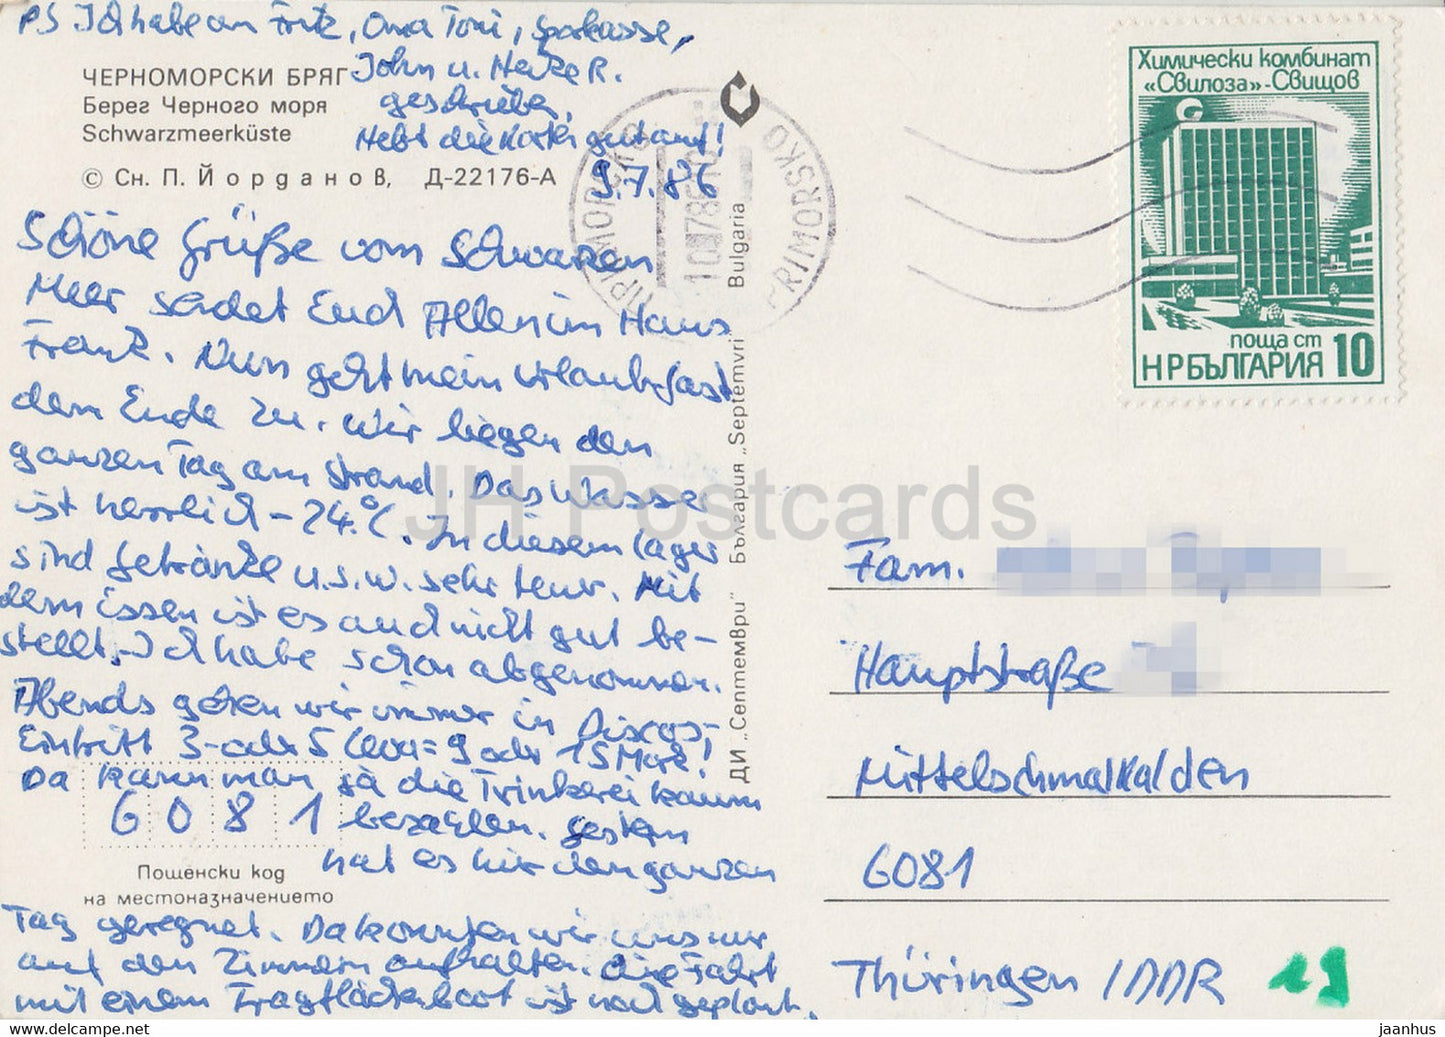 PS Ich habe an Fritz, Oma Toni, Sparkasse,
John u. Heike R.
geschrieben.
Hebt die Karten gut auf!
9.7.86
ЧЕРНОМОРСКИ БРЯГ
Берег Черного моря
Schwarzmeerküste
© Сн. П. Йорданов, Д-22176-А
Schöne Grüße vom Schwarzen
Meer sendet Euch Allen im Haus
Frank. Nun geht mein Urlaub fast
dem Ende zu. Wir liegen den
ganzen Tag am Strand. Das Wasser
ist herrlich - 24°C. In diesem Lager
sind Getränke u.s.w. sehr teuer. Mit
dem Essen ist es auch nicht gut be-
stellt. Ich habe schon abgenommen.
Abends gehen wir immer in Discos,
Eintritt 3- oder 5 Leva = 9 oder 15 Mark!
Da kann man ja die Trinkerei kaum
bezahlen. Gestern
hat es hier den ganzen
Tag geregnet. Da konnten wir uns nur
auf den Zimmern aufhalten. Die Fahrt
mit einem Tragflächenboot ist noch geplant.
6081
Пощенски код
на местоназначението
ДИ „Септември" България „Septemvri Bulgaria
ПРИМОРСКО
10.786-10
PRIMORSKO
Химически комбинат
«Свилоза»-Свищов
поща ст
НР БЪЛГАРИЯ 10
JH Postcards
Fam.
Hauptstraße
Mittelschmalkalden
6081
Thüringen / DDR 19
www.delcampe.net
jaanhus